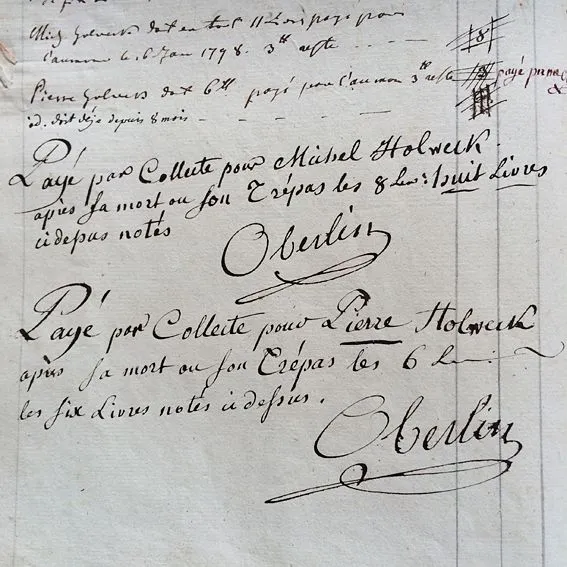 Mich Holweck doit en tout 11 Livres payé pour
l'aumone le 6 Jan 1798. 3 tt reste
8
Pierre Holweck doit 6 tt payé pour l'aumon 3 tt reste payé par moi
id. doit déja depuis 8 mois
Payé par Collecte pour Michel Holweck.
après sa mort ou son Trépas les 8 Liv: huit Livres
cidessus notés
Oberlin
Payé par Collecte pour Pierre Holweck
après sa mort ou son Trépas les 6
les six Livres notés ci dessus.
Oberlin